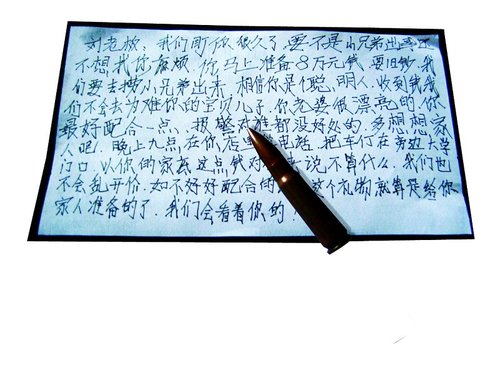 刘老板、我们盯你很久了,要不是小兄弟出事还
不想找你麻烦,你马上准备8万元钱,要旧钞,我
们要去捞小兄弟出来,相信你是个聪明人,收到钱我
们不会去为难你的宝贝儿子,你老婆很漂亮的,你
最好配合一点,报警对谁都没好处的,多想想家
人吧,晚上九点,在你店里等电话,把车们在旁边大学
门口,以你的家底这点钱对你来说不算什么,我们也
不会乱开价,如不好好配合的 这个礼物就算是给你
家人准备的了,我们会看着你的